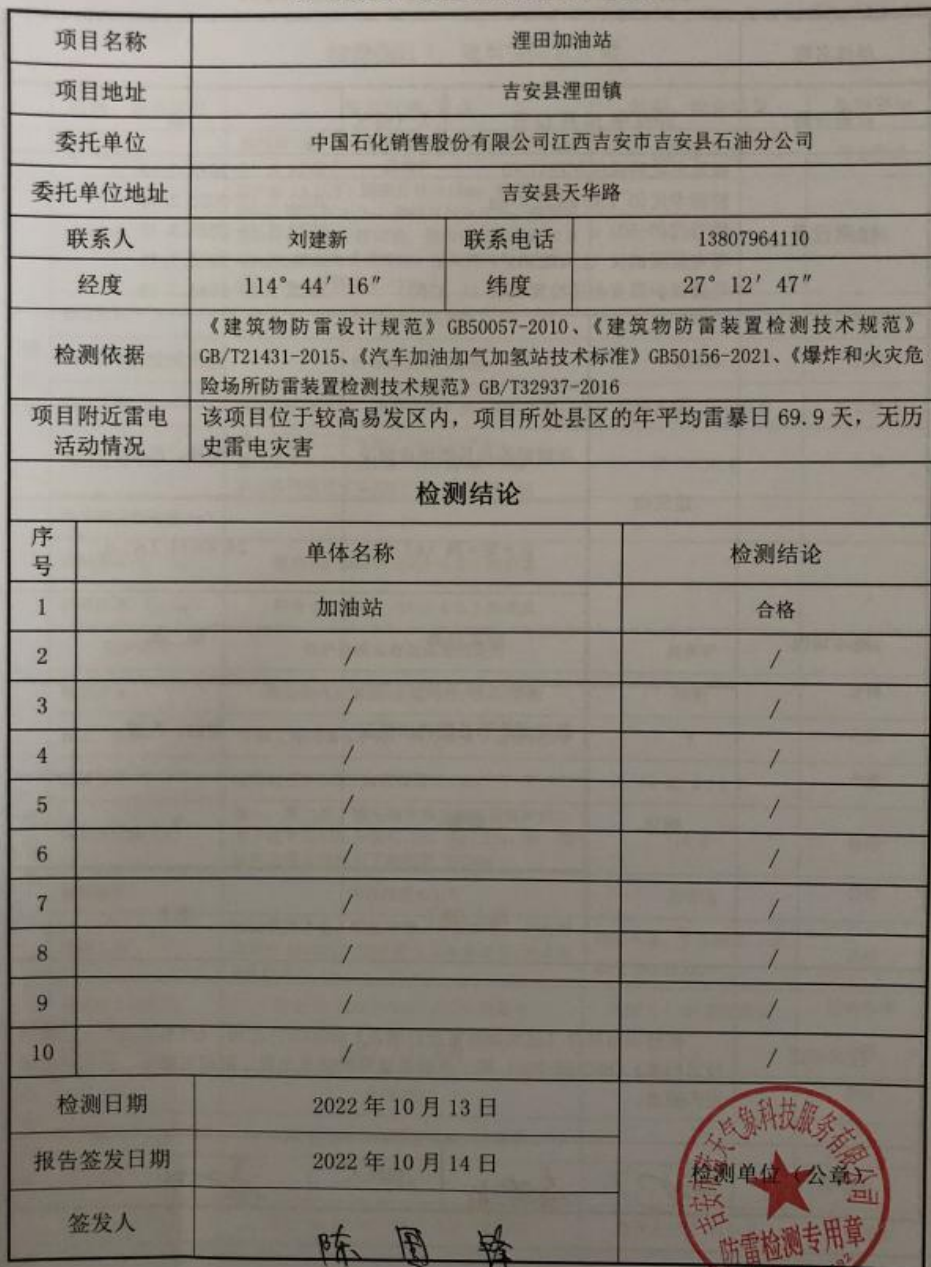 项目名称 浬田加油站
项目地址 吉安县浬田镇
委托单位 中国石化销售股份有限公司江西吉安市吉安县石油分公司
委托单位地址 吉安县天华路
联系人 刘建新 联系电话 13807964110
经度 114° 44′ 16″ 纬度 27° 12′ 47″
检测依据
《建筑物防雷设计规范》GB50057-2010、《建筑物防雷装置检测技术规范》
GB/T21431-2015、《汽车加油加气加氢站技术标准》GB50156-2021、《爆炸和火灾危
险场所防雷装置检测技术规范》GB/T32937-2016
项目附近雷电
活动情况
该项目位于较高易发区内，项目所处县区的年平均雷暴日 69.9 天，无历
史雷电灾害
检测结论
序
号
单体名称 检测结论
1 加油站 合格
2 / /
3 / /
4 / /
5 / /
6 / /
7 / /
8 / /
9 / /
10 / /
检测日期 2022 年 10 月 13 日
报告签发日期 2022 年 10 月 14 日
检测单位（公章）
签发人 陈国锋
吉安市蓝天气象科技服务有限公司
防雷检测专用章